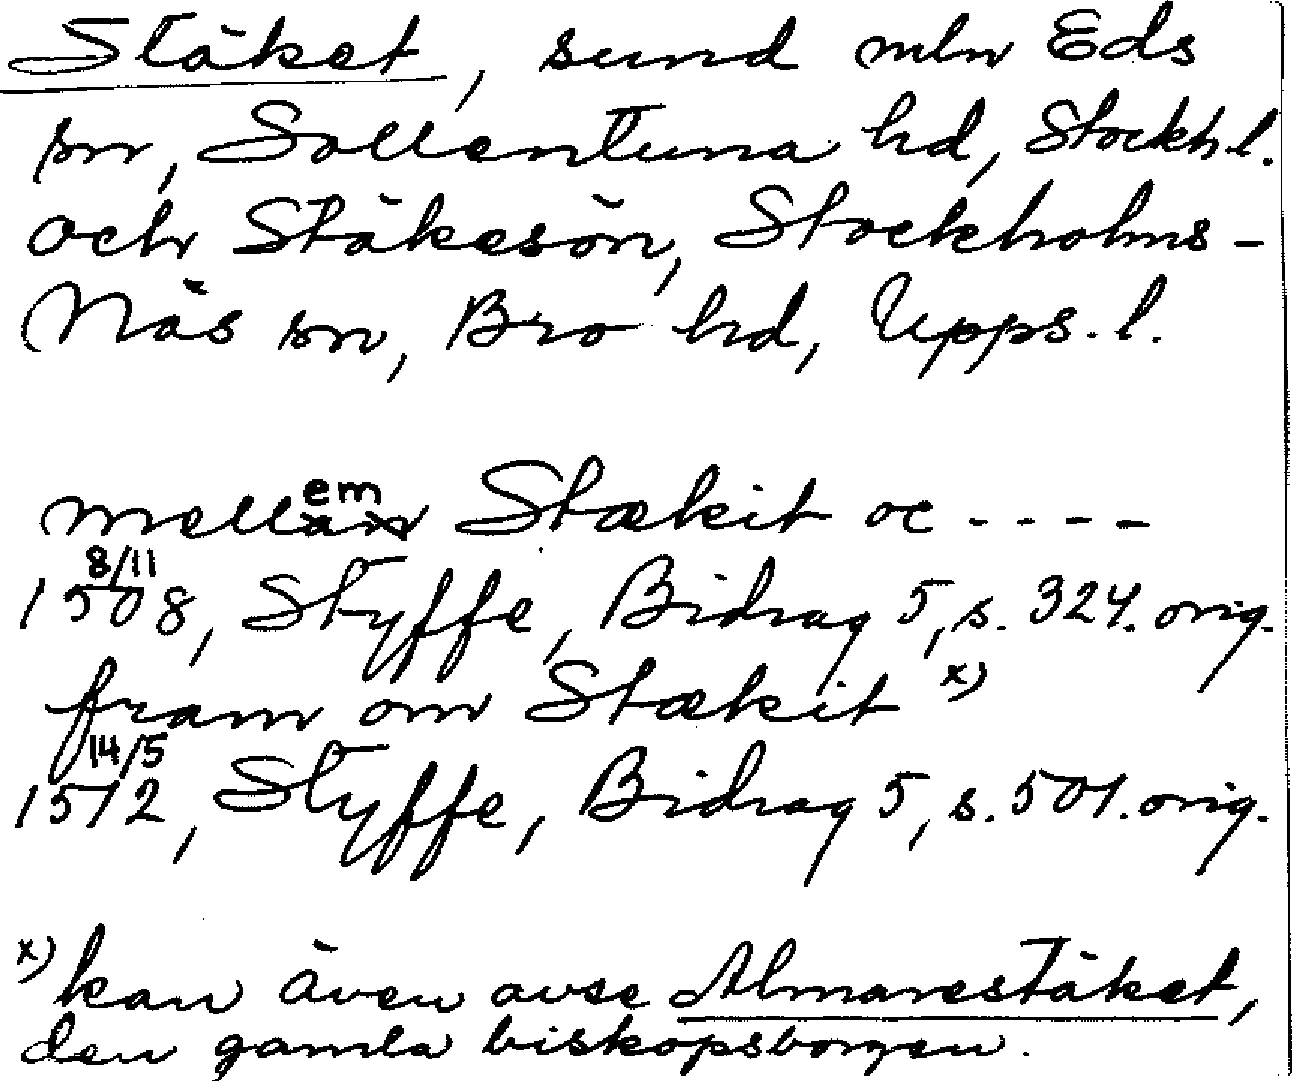 Stäket, sund mln Eds
sn, Sollentuna hd, Stockh.l.
och Stäkesön, Stockholms-
Näs sn, Bro hd, Upps. l.
mellem Stækit oc - - - -
8/11 1508, Styffe, Bidrag 5, s. 324. orig.
fram om Stækit x)
14/5 1512, Styffe, Bidrag 5, s. 501. orig.
x) kan även avse Almarestäket,
den gamla biskopsborgen.